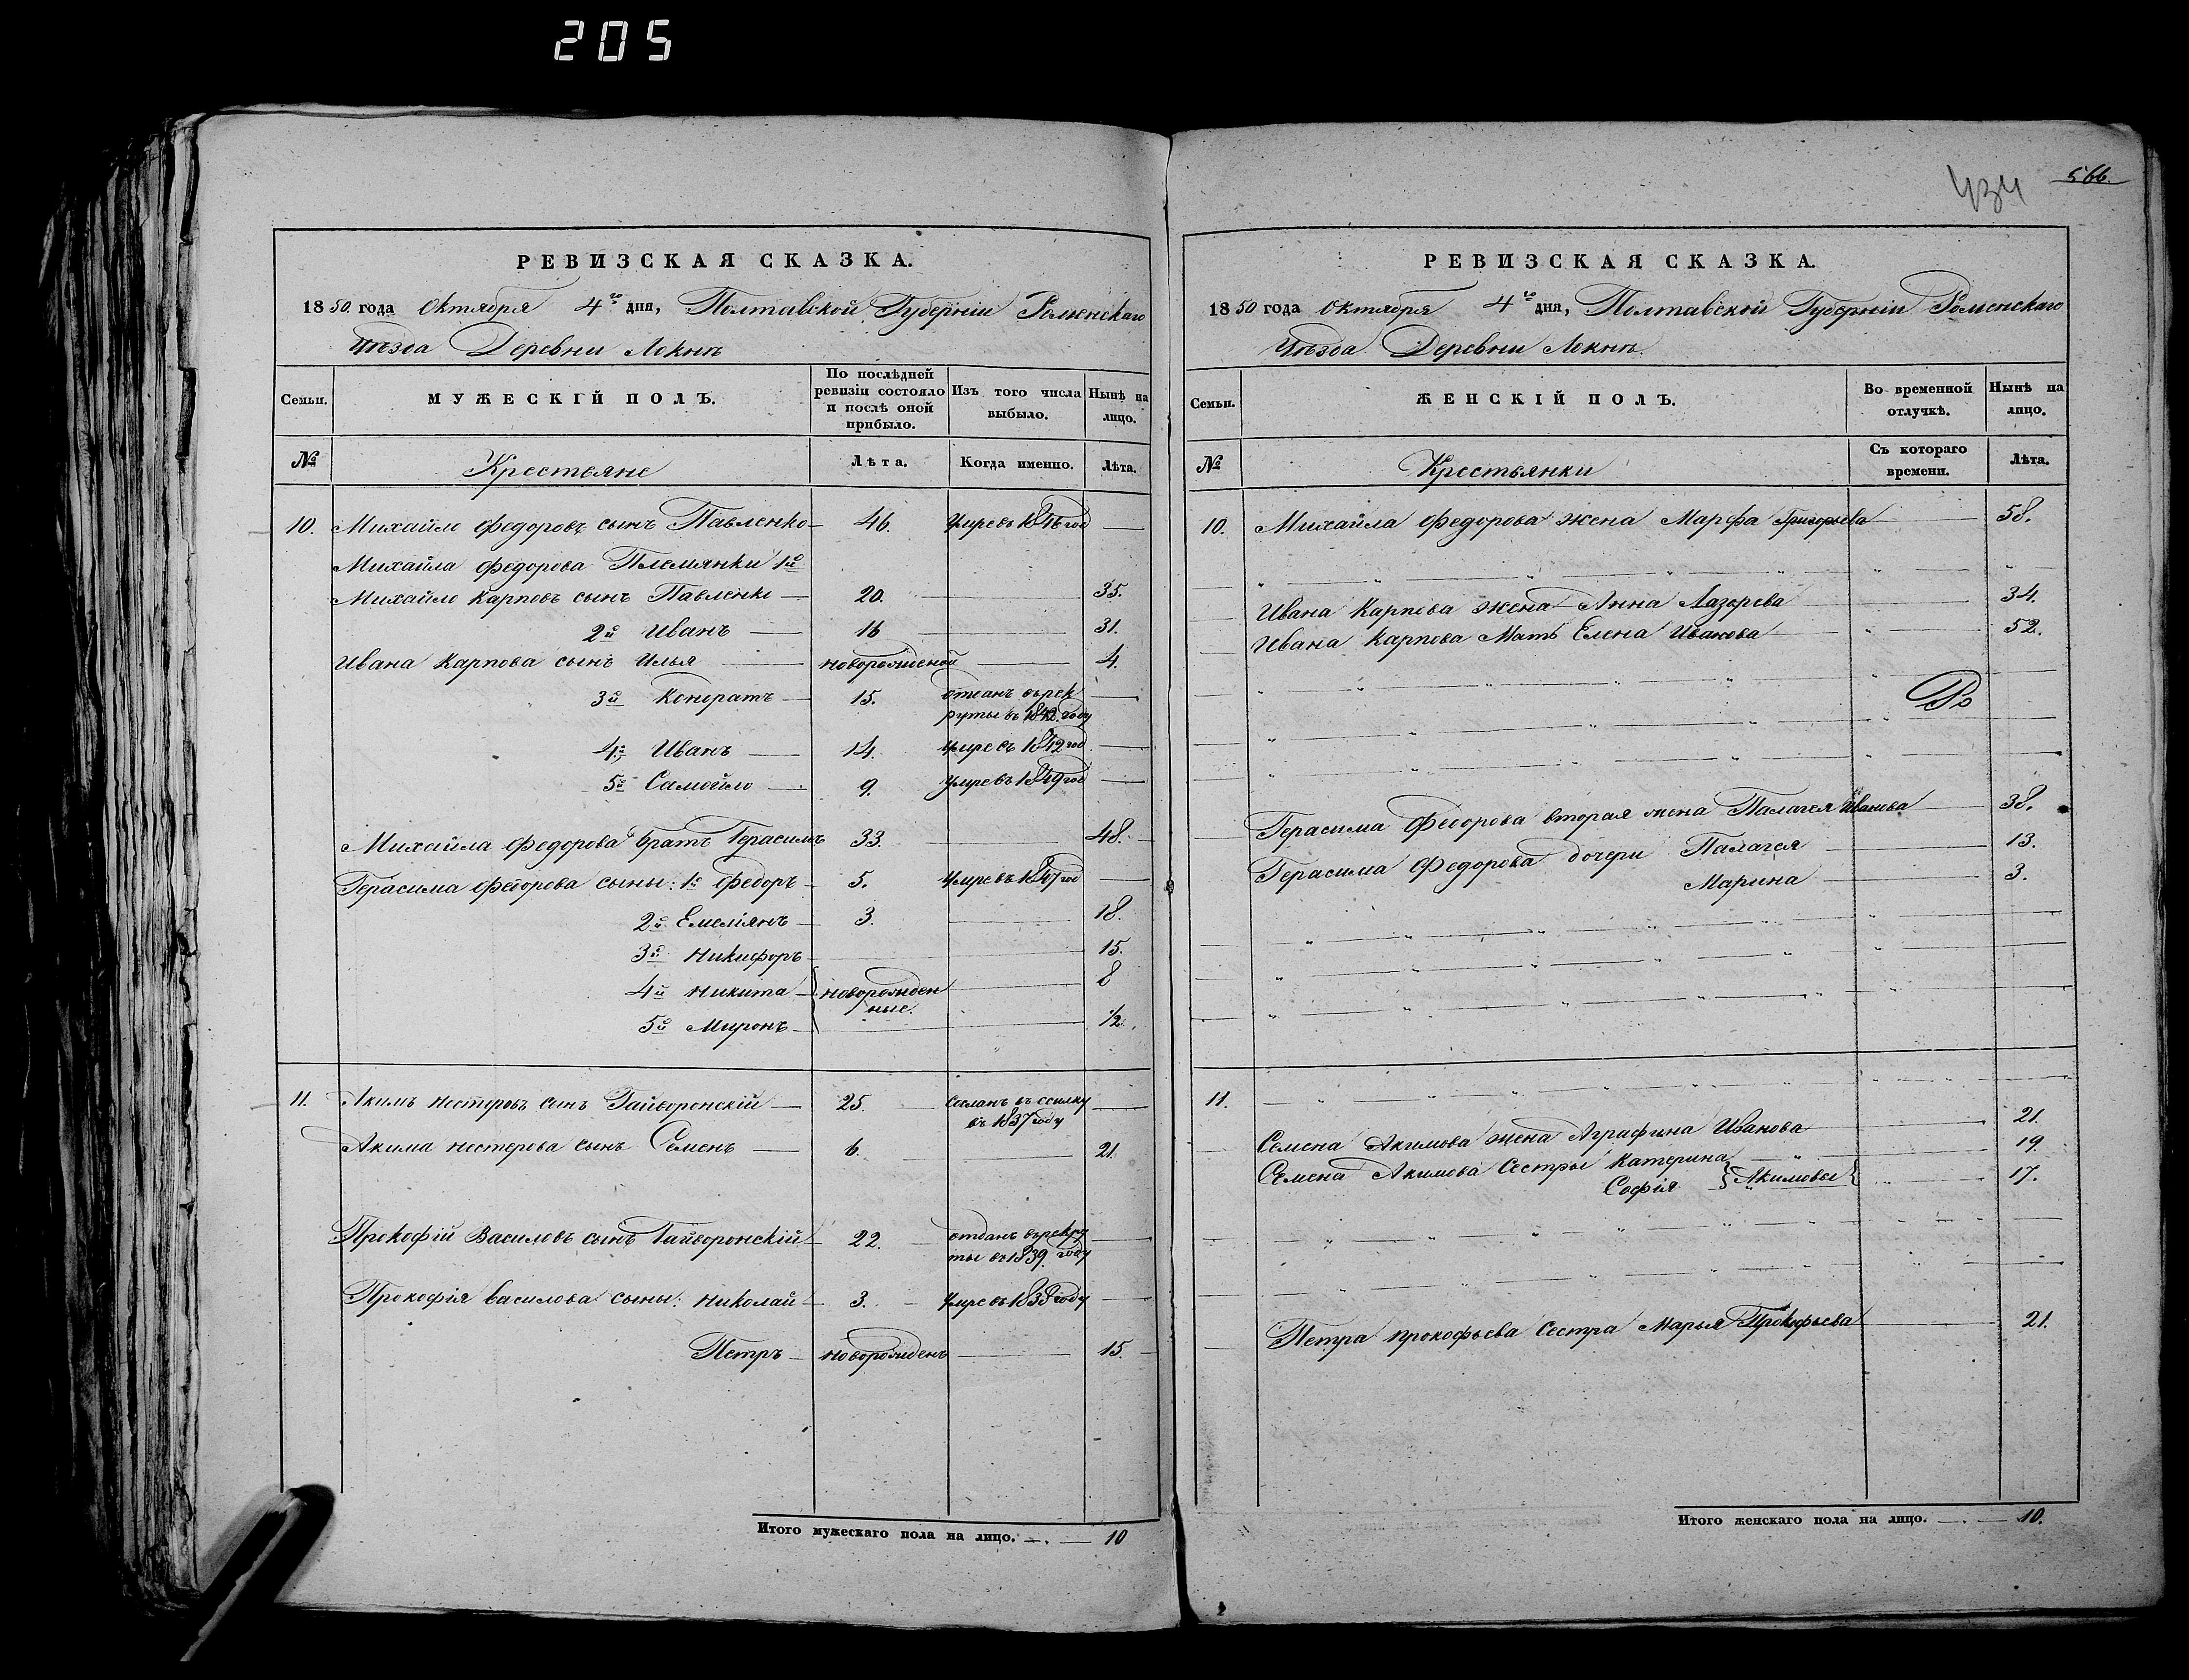 205
434
566.
РЕВИЗСКАЯ СКАЗКА.
1850 года Октября 4го дня, Полтавской Губерніи Роменскаго
Уѣзда Деревни Локнѣ
Семьи.
МУЖЕСКІЙ ПОЛЪ.
По послѣдней ревизіи состояло и послѣ оной прибыло.
Изъ того числа выбыло.
Нынѣ на лицо.
№
Крестьяне
Лѣта.
Когда именно.
Лѣта.
10. Михайло Федоровъ сынъ Павленко — 46. Умре въ 1846 год —
Михайла Федорова Племянки 1й
Михайло Карповъ сынъ Павленко — 20. — 35.
2й Иванъ — 16 — 31.
Ивана Карпова сынъ Илья — новорожденой — 4.
3й Кондратъ — 15. отдан въ рек —
руты въ 1842. году
4й Иванъ — 14. Умре въ 1842 год —
5й Самойло — 9. Умре въ 1849 год —
Михайла Федорова братъ Герасимъ 33. — 48.
Герасима Федорова сыны: 1й Федоръ — 5. Умре въ 1847 год —
2й Емеліянъ — 3. — 18.
3й Никифоръ — 15.
4й Никита — новорожден — 8
ные.
5й Миронъ — 1/2.
11. Акимъ Нестеровъ сынъ Гайворонскій — 25. Сосланъ въ ссилку —
въ 1837 году
Акима Нестерова сынъ Семенъ — 6. — 21.
Прокофій Василовъ сынъ Гайворонскій — 22. отданъ въ рекру —
ты въ 1839. году
Прокофія Василова сыны: Николай — 3. — Умре въ 1838 году —
Петръ — новорожденъ — 15.
Итого мужескаго пола на лицо. — 10
РЕВИЗСКАЯ СКАЗКА.
1850 года Октября 4го дня, Полтавской Губерніи Роменскаго
Уѣзда Деревни Локнѣ.
Семьи.
ЖЕНСКІЙ ПОЛЪ.
Во временной отлучкѣ.
Нынѣ на лицо.
№
Крестьянки
Съ котораго времени.
Лѣта.
10. Михайла Федорова жена Марфа Григорьева — 58.
Ивана Карпова жена Анна Лазорева — 34.
Ивана Карпова Мать Елена Иванова — 52.
Герасима Федорова вторая жена Палагея Иванова — 38.
Герасима Федорова дочери Палагея — 13.
Марина — 3.
11.
Семена Акимова жена Аграфина Иванова — 21.
Семена Акимова Сестры Катерина — 19.
Софія } Акимовы { 17.
Петра Прокофьева Сестра Марья Прокофьева — 21.
Итого женскаго пола на лицо. — 10.